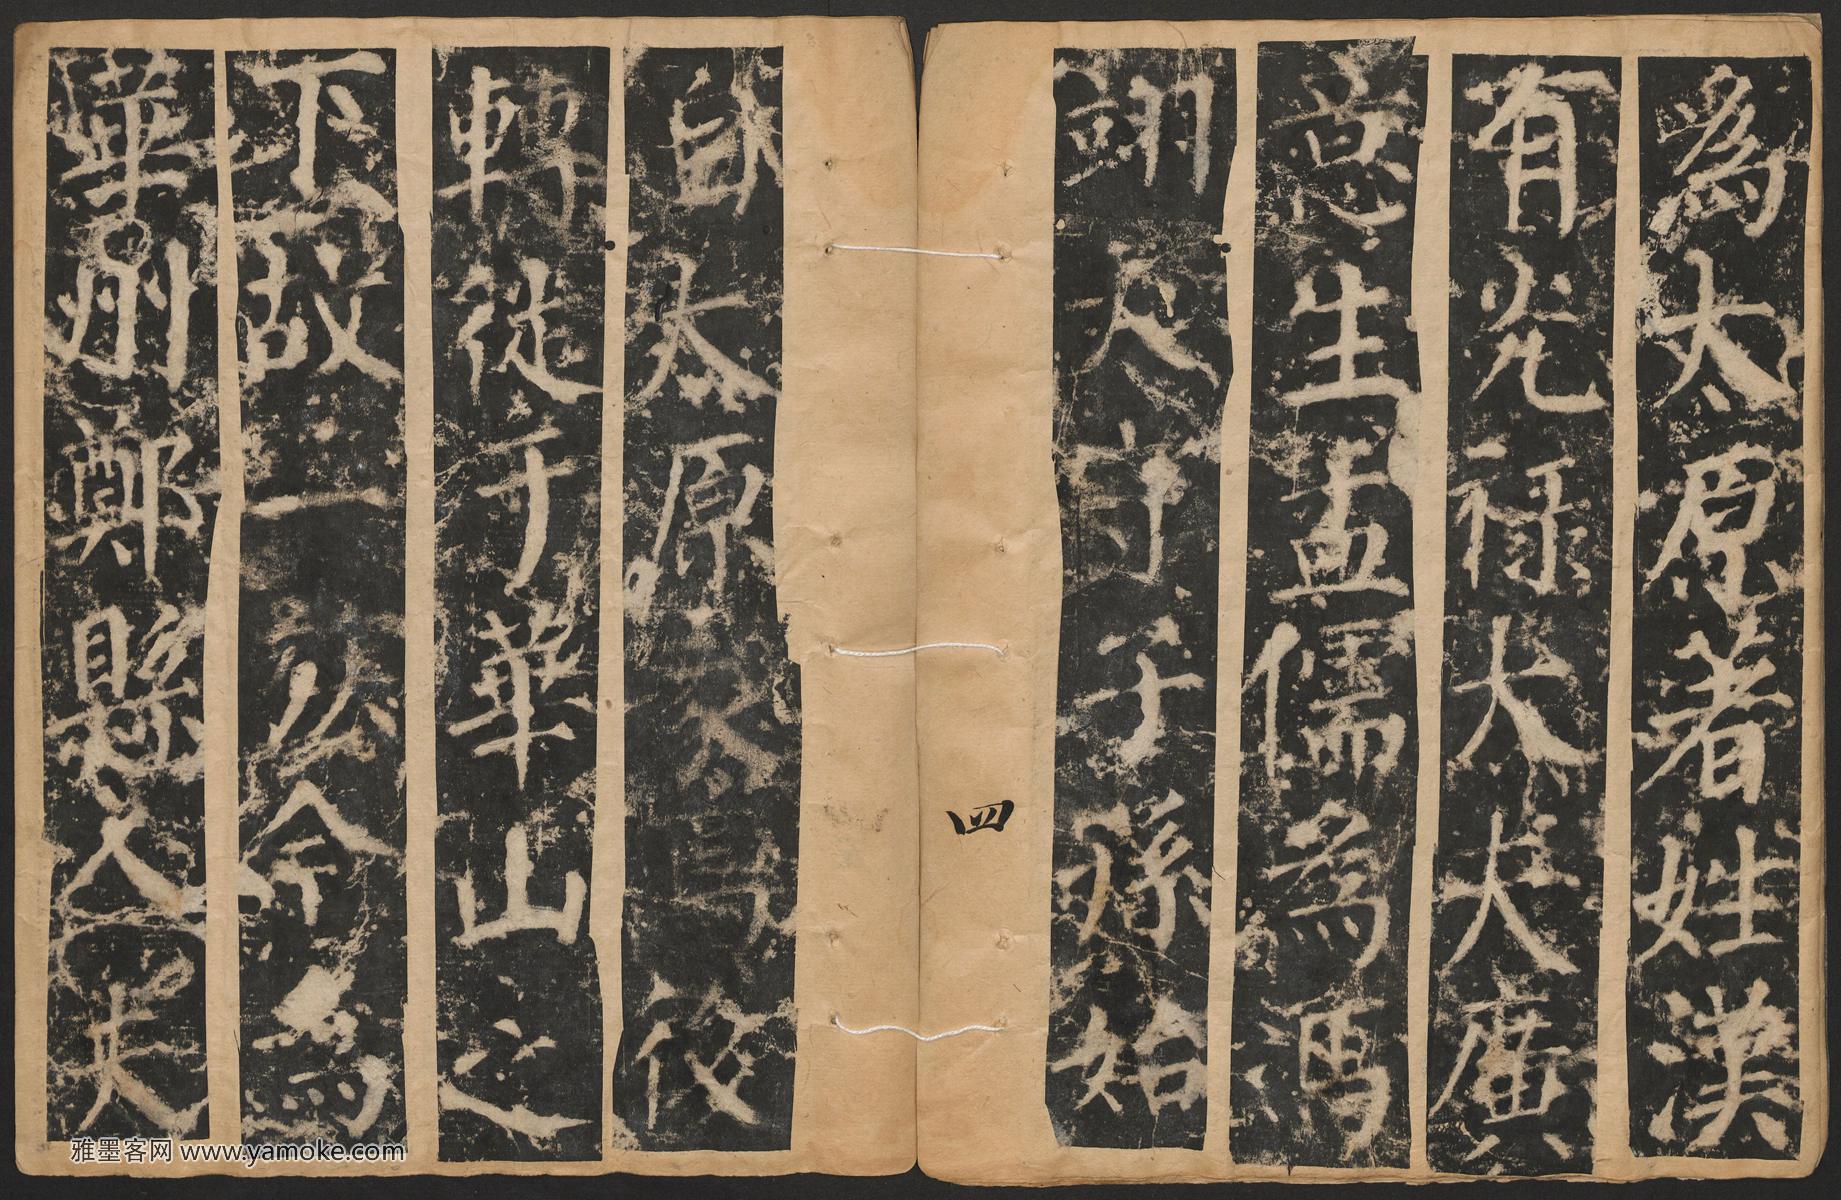 為太原著姓漢
有光祿大夫廣
意生孟儒為馮
翊太守子孫始
四
自太原家焉後
轉徙于華山之
下故一今為
華州鄭縣人夫
雅墨客网 www.yamoke.com